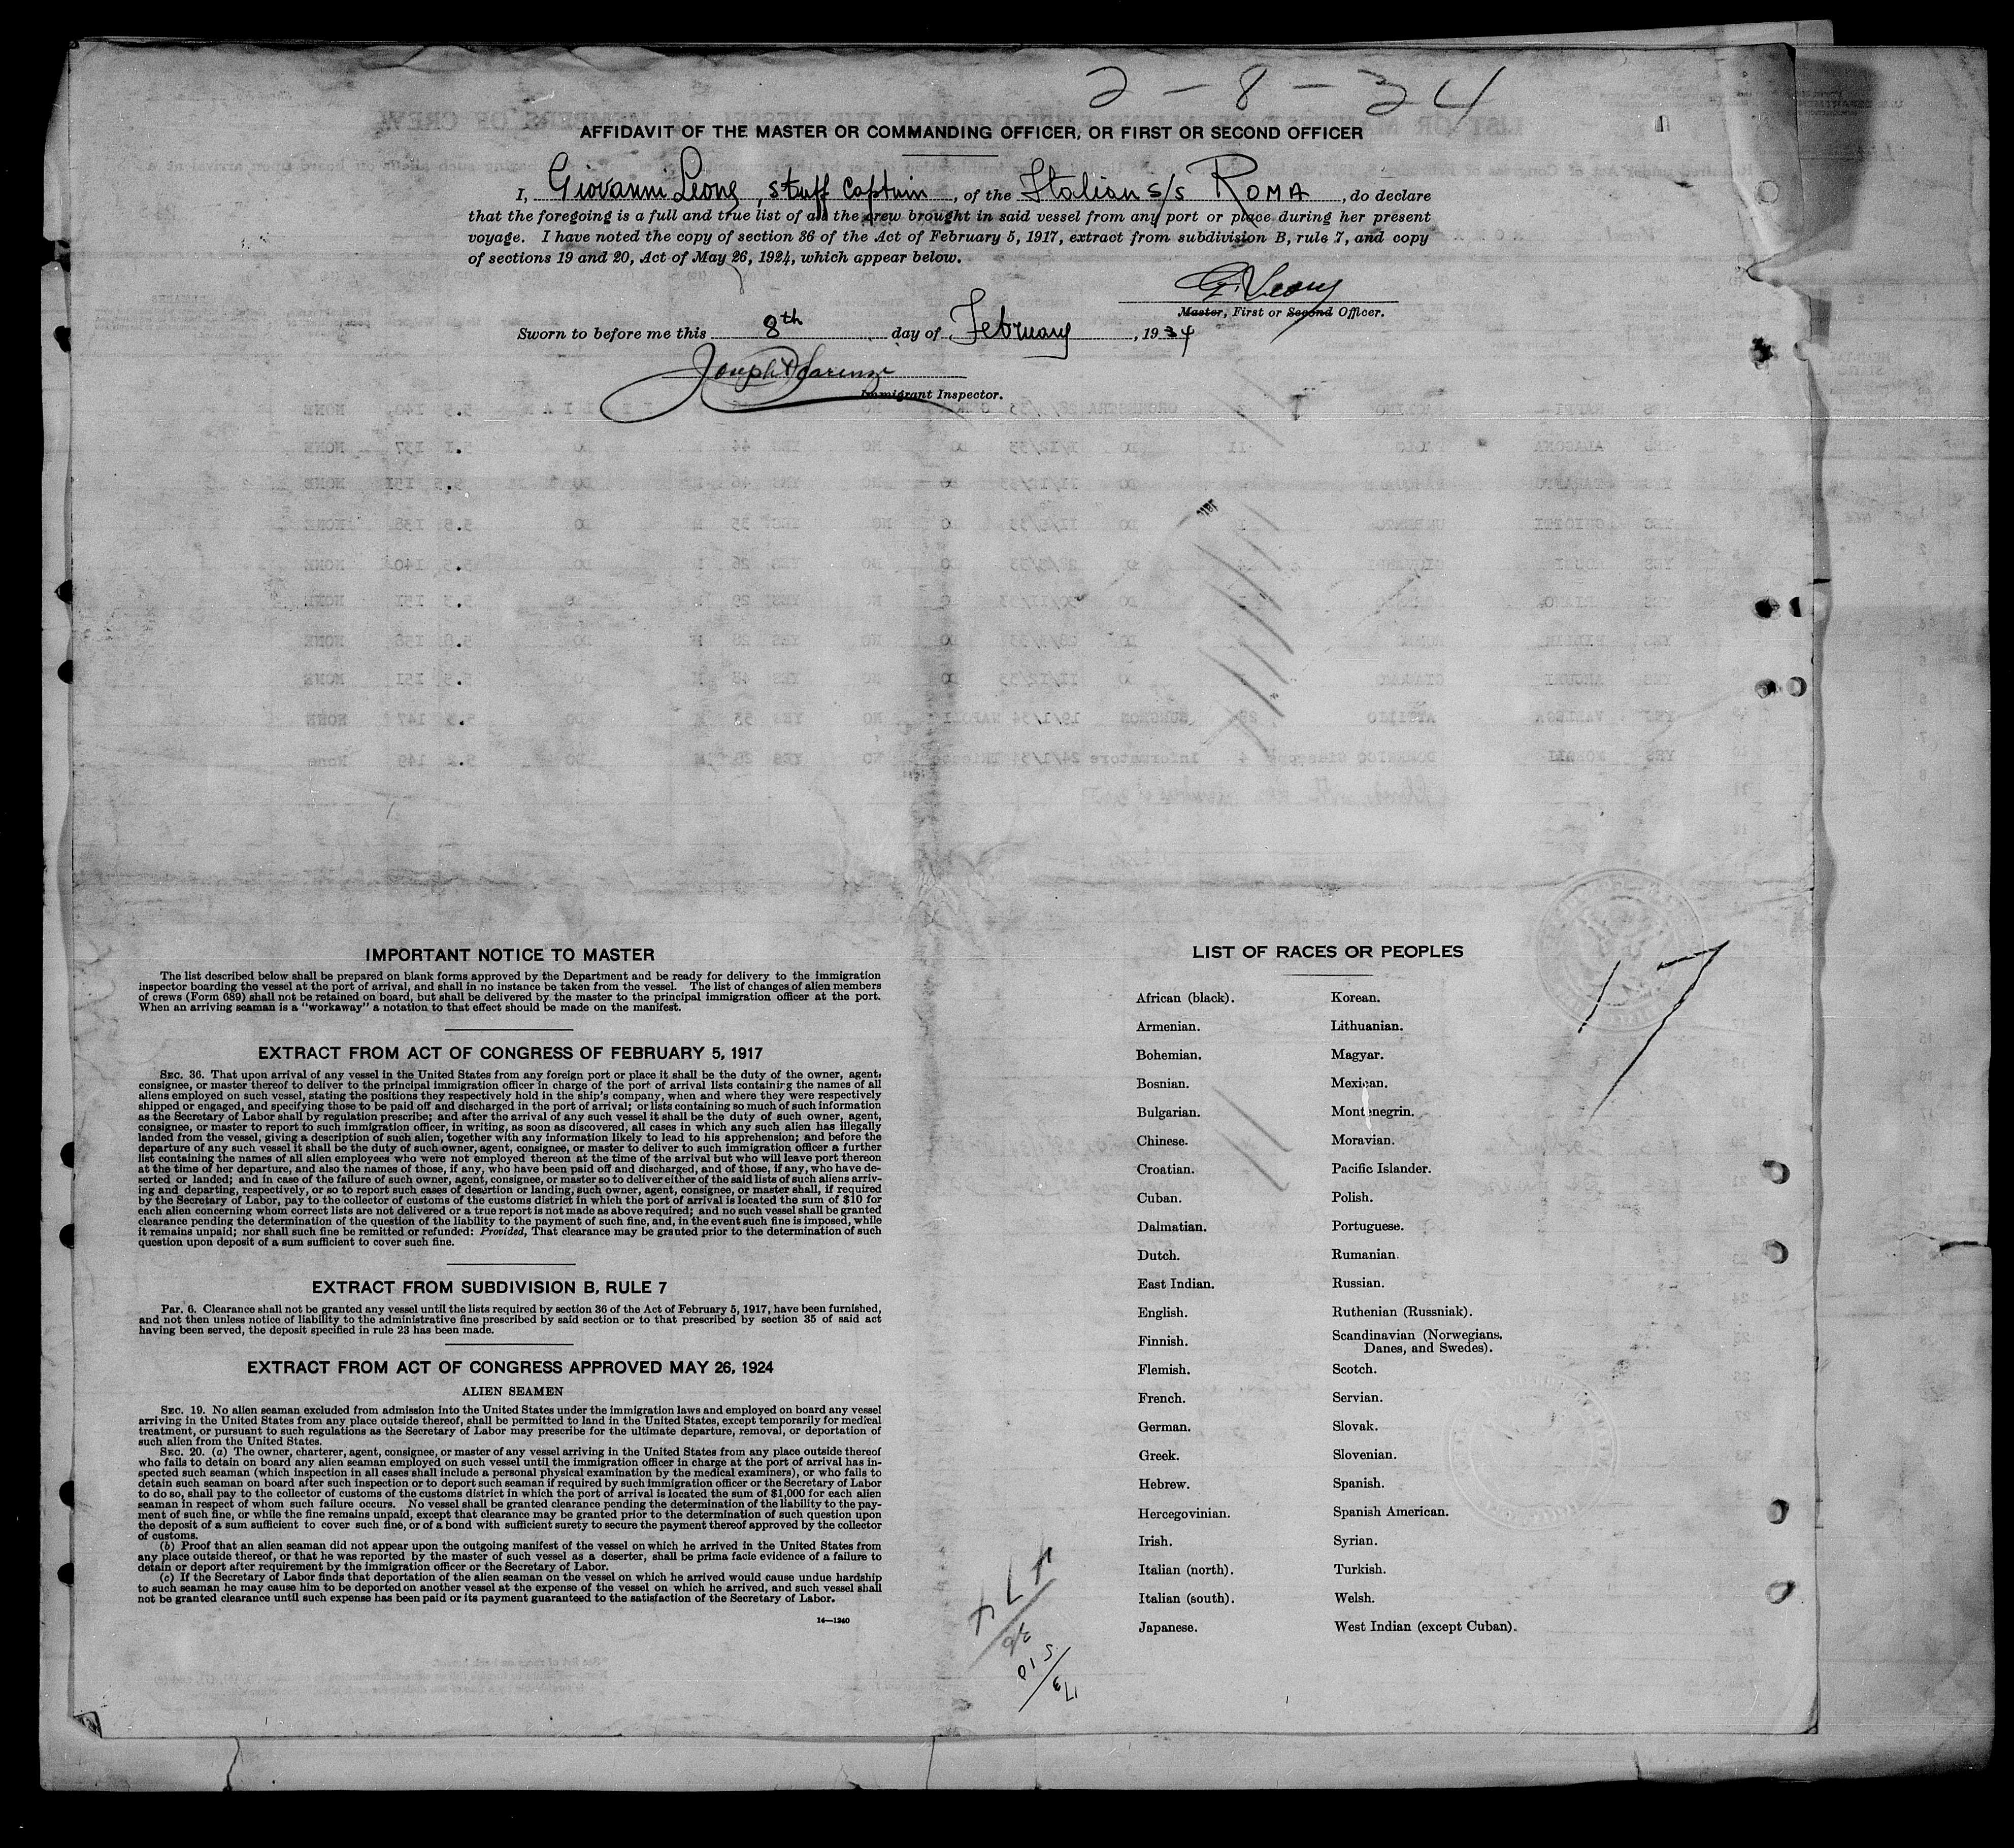 2-8-34
AFFIDAVIT OF THE MASTER OR COMMANDING OFFICER, OR FIRST OR SECOND OFFICER
I, Giovanni Leone, stuff Captuin, of the Italian S/S ROMA, do declare
that the foregoing is a full and true list of all the crew brought in said vessel from any port or place during her present
voyage. I have noted the copy of section 36 of the Act of February 5, 1917, extract from subdivision B, rule 7, and copy
of sections 19 and 20, Act of May 26, 1924, which appear below.
G. Leone
Master, First or Second Officer.
Sworn to before me this 8th day of February, 1934
Immigrant Inspector.
IMPORTANT NOTICE TO MASTER
The list described below shall be prepared on blank forms approved by the Department and be ready for delivery to the immigration
inspector boarding the vessel at the port of arrival, and shall in no instance be taken from the vessel. The list of changes of alien members
of crews (Form 689) shall not be retained on board, but shall be delivered by the master to the principal immigration officer at the port.
When an arriving seaman is a "workaway" a notation to that effect should be made on the manifest.
EXTRACT FROM ACT OF CONGRESS OF FEBRUARY 5, 1917
SEC. 36. That upon arrival of any vessel in the United States from any foreign port or place it shall be the duty of the owner, agent,
consignee, or master thereof to deliver to the principal immigration officer in charge of the port of arrival lists containing the names of all
aliens employed on such vessel, stating the positions they respectively hold in the ship's company, when and where they were respectively
shipped or engaged, and specifying those to be paid off and discharged in the port of arrival; or lists containing so much of such information
as the Secretary of Labor shall by regulation prescribe; and after the arrival of any such vessel it shall be the duty of such owner, agent,
consignee, or master to report to such immigration officer, in writing, as soon as discovered, all cases in which any such alien has illegally
landed from the vessel, giving a description of such alien, together with any information likely to lead to his apprehension; and before the
departure of any such vessel it shall be the duty of such owner, agent, consignee, or master to deliver to such immigration officer a further
list containing the names of all alien employees who were not employed thereon at the time of the arrival but who will leave port thereon
at the time of her departure, and also the names of those, if any, who have been paid off and discharged, and of those, if any, who have de-
serted or landed; and in case of the failure of such owner, agent, consignee, or master so to deliver either of the said lists of such aliens arriv-
ing and departing, respectively, or so to report such cases of desertion or landing, such owner, agent, consignee, or master shall, if required
by the Secretary of Labor, pay to the collector of customs of the customs district in which the port of arrival is located the sum of $10 for
each alien concerning whom correct lists are not delivered or a true report is not made as above required; and no such vessel shall be granted
clearance pending the determination of the question of the liability to the payment of such fine, and, in the event such fine is imposed, while
it remains unpaid; nor shall such fine be remitted or refunded: Provided, That clearance may be granted prior to the determination of such
question upon deposit of a sum sufficient to cover such fine.
EXTRACT FROM SUBDIVISION B, RULE 7
Par. 6. Clearance shall not be granted any vessel until the lists required by section 36 of the Act of February 5, 1917, have been furnished,
and not then unless notice of liability to the administrative fine prescribed by said section or to that prescribed by section 35 of said act
having been served, the deposit specified in rule 23 has been made.
EXTRACT FROM ACT OF CONGRESS APPROVED MAY 26, 1924
ALIEN SEAMEN
SEC. 19. No alien seaman excluded from admission into the United States under the immigration laws and employed on board any vessel
arriving in the United States from any place outside thereof, shall be permitted to land in the United States, except temporarily for medical
treatment, or pursuant to such regulations as the Secretary of Labor may prescribe for the ultimate departure, removal, or deportation of
such alien from the United States.
SEC. 20. (a) The owner, charterer, agent, consignee, or master of any vessel arriving in the United States from any place outside thereof
who fails to detain on board any alien seaman employed on such vessel until the immigration officer in charge at the port of arrival has in-
spected such seaman (which inspection in all cases shall include a personal physical examination by the medical examiners), or who fails to
detain such seaman on board after such inspection or to deport such seaman if required by such immigration officer or the Secretary of Labor
to do so, shall pay to the collector of customs of the customs district in which the port of arrival is located the sum of $1,000 for each alien
seaman in respect of whom such failure occurs. No vessel shall be granted clearance pending the determination of the liability to the pay-
ment of such fine, or while the fine remains unpaid, except that clearance may be granted prior to the determination of such question upon
the deposit of a sum sufficient to cover such fine, or of a bond with sufficient surety to secure the payment thereof approved by the collector
of customs.
(b) Proof that an alien seaman did not appear upon the outgoing manifest of the vessel on which he arrived in the United States from
any place outside thereof, or that he was reported by the master of such vessel as a deserter, shall be prima facie evidence of a failure to
detain or deport after requirement by the immigration officer or the Secretary of Labor.
(c) If the Secretary of Labor finds that deportation of the alien seaman on the vessel on which he arrived would cause undue hardship
to such seaman he may cause him to be deported on another vessel at the expense of the vessel on which he arrived, and such vessel shall
not be granted clearance until such expense has been paid or its payment guaranteed to the satisfaction of the Secretary of Labor.
14—1240
LIST OF RACES OR PEOPLES
17
African (black).
Armenian.
Bohemian.
Bosnian.
Bulgarian.
Chinese.
Croatian.
Cuban.
Dalmatian.
Dutch.
East Indian.
English.
Finnish.
Flemish.
French.
German.
Greek.
Hebrew.
Hercegovinian.
Irish.
Italian (north).
Italian (south).
Japanese.
Korean.
Lithuanian.
Magyar.
Mexican.
Montenegrin.
Moravian.
Pacific Islander.
Polish.
Portuguese.
Rumanian.
Russian.
Ruthenian (Russniak).
Scandinavian (Norwegians,
Danes, and Swedes).
Scotch.
Servian.
Slovak.
Slovenian.
Spanish.
Spanish American.
Syrian.
Turkish.
Welsh.
West Indian (except Cuban).